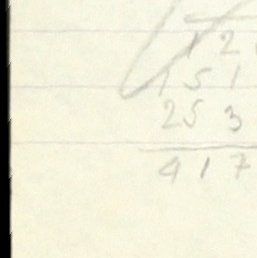 12
151
253
417